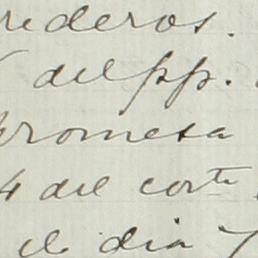 rederos.
del pp.
promesa
4 del corte
el dia 7